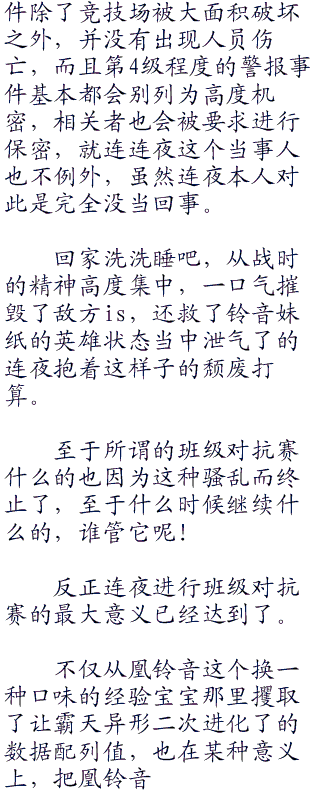 件除了竞技场被大面积破坏
之外，并没有出现人员伤
亡，而且第4级程度的警报事
件基本都会别列为高度机
密，相关者也会被要求进行
保密，就连连夜这个当事人
也不例外，虽然连夜本人对
此是完全没当回事。
回家洗洗睡吧，从战时
的精神高度集中，一口气摧
毁了敌方is，还救了铃音妹
纸的英雄状态当中泄气了的
连夜抱着这样子的颓废打
算。
至于所谓的班级对抗赛
什么的也因为这种骚乱而终
止了，至于什么时候继续什
么的，谁管它呢！
反正连夜进行班级对抗
赛的最大意义已经达到了。
不仅从凰铃音这个换一
种口味的经验宝宝那里攫取
了让霸天异形二次进化了的
数据配列值，也在某种意义
上，把凰铃音